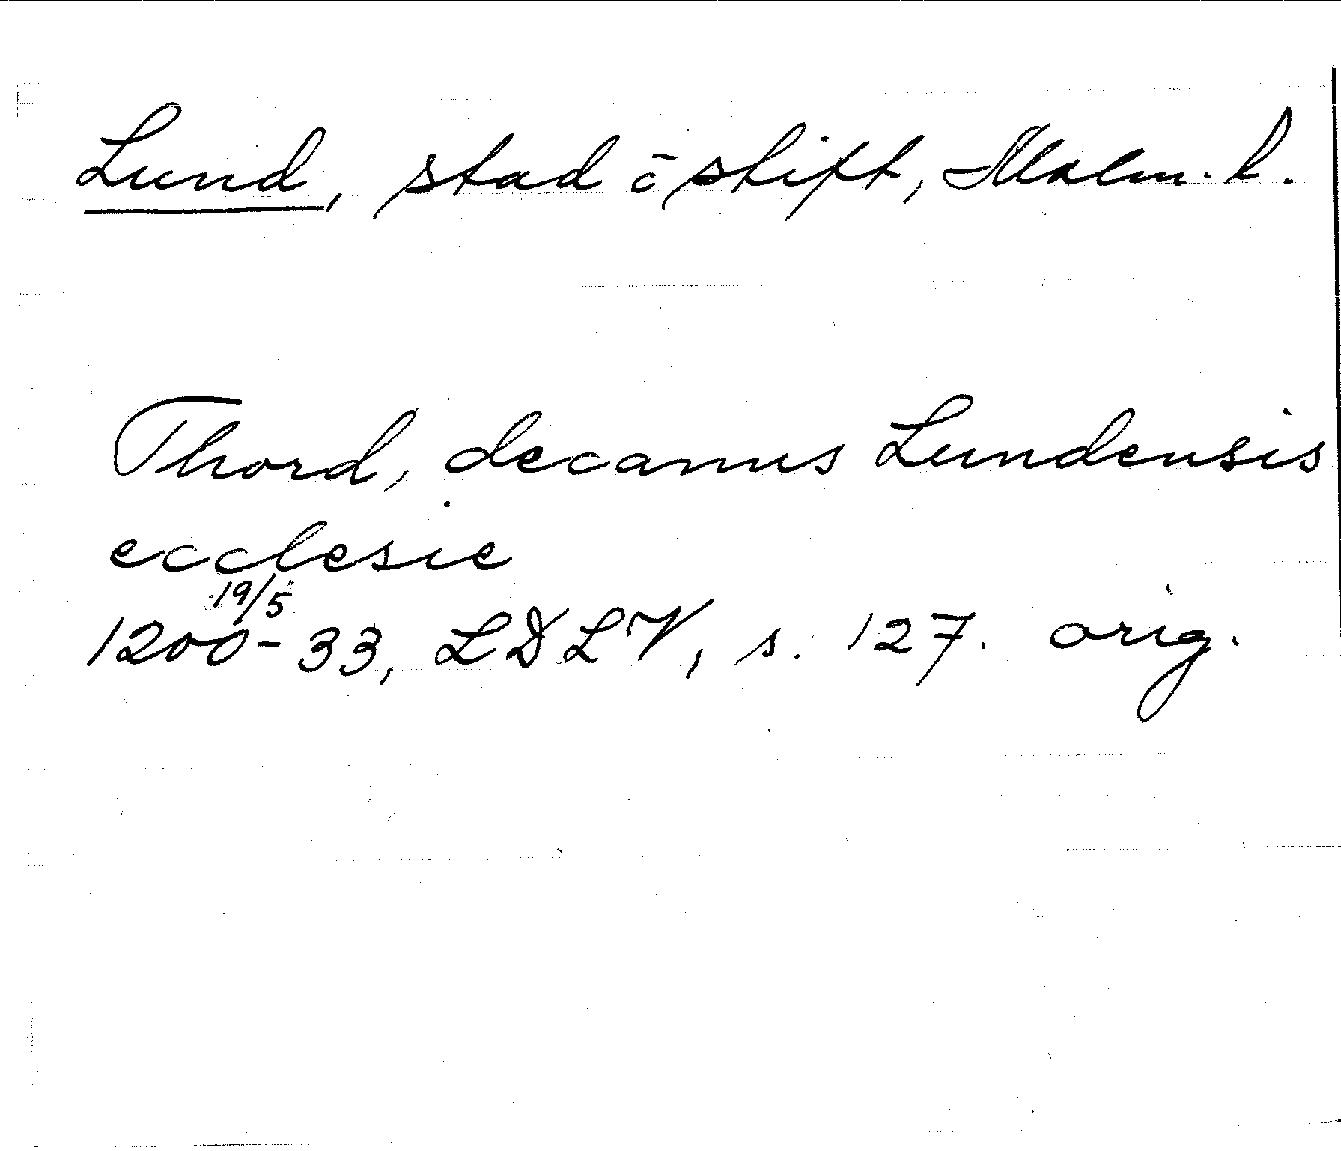 Lund, stad o stift, Malm. l.
Thord, decanus Lundensis
ecclesie
19/5
1200-33, LDLV, s. 127. orig.